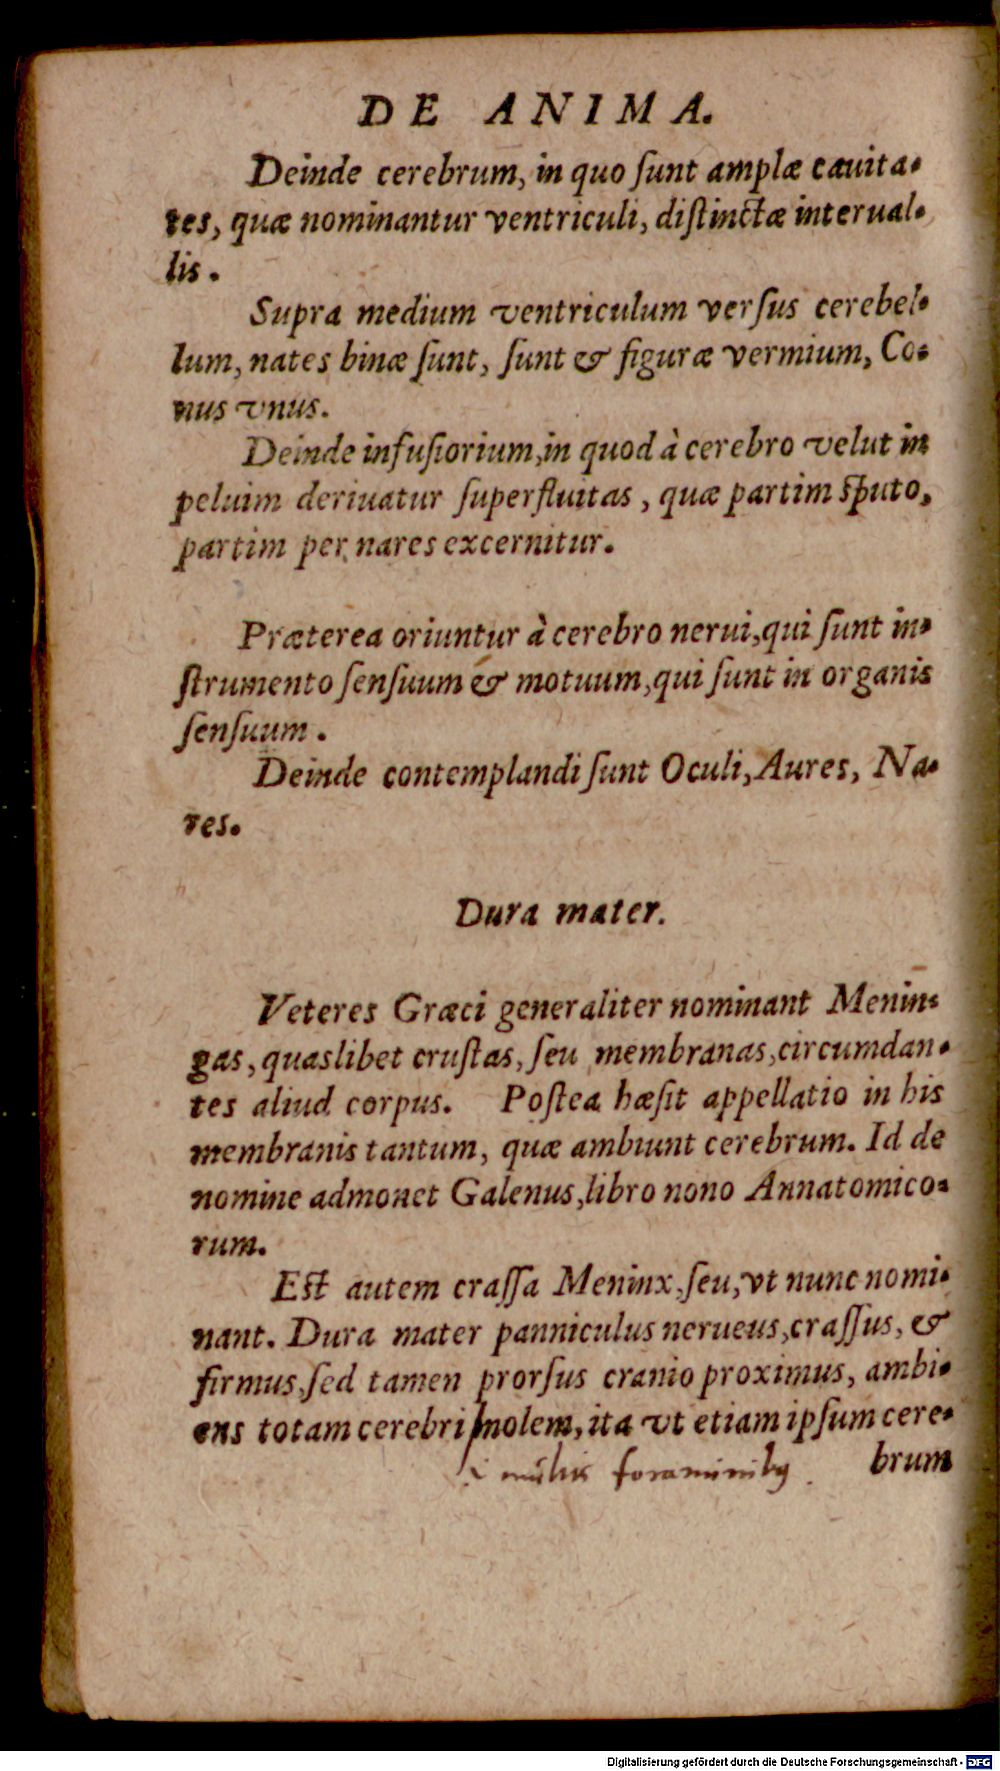 DE ANIMA.
Deinde cerebrum, in quo ſunt amplæ cauita-
tes, quæ nominantur ventriculi, diſtinctæ interual-
lis.
Supra medium ventriculum verſus cerebel-
lum, nates binæ ſunt, ſunt & figuræ vermium, Co-
nus vnus.
Deinde infuſiorium, in quod à cerebro velut in
peluim deriuatur ſuperfluitas, quæ partim ſputo,
partim per nares excernitur.
Præterea oriuntur à cerebro nerui, qui ſunt in-
ſtrumento ſenſuum & motuum, qui ſunt in organis
ſenſuum.
Deinde contemplandi ſunt Oculi, Aures, Na-
res.
Dura mater.
Veteres Græci generaliter nominant Menin-
gas, quaslibet cruſtas, ſeu membranas, circumdan-
tes aliud corpus. Poſtea hæſit appellatio in his
membranis tantum, quæ ambiunt cerebrum. Id de
nomine admonet Galenus, libro nono Annatomico-
rum.
Eſt autem craſſa Meninx, ſeu, vt nunc nomi-
nant. Dura mater panniculus nerueus, craſſus, &
firmus, ſed tamen prorſus cranio proximus, ambi-
ens totam cerebri molem, ita vt etiam ipſum cere-
foraminibꝰ
brum
Digitalisierung gefördert durch die Deutsche Forschungsgemeinschaft - DFG